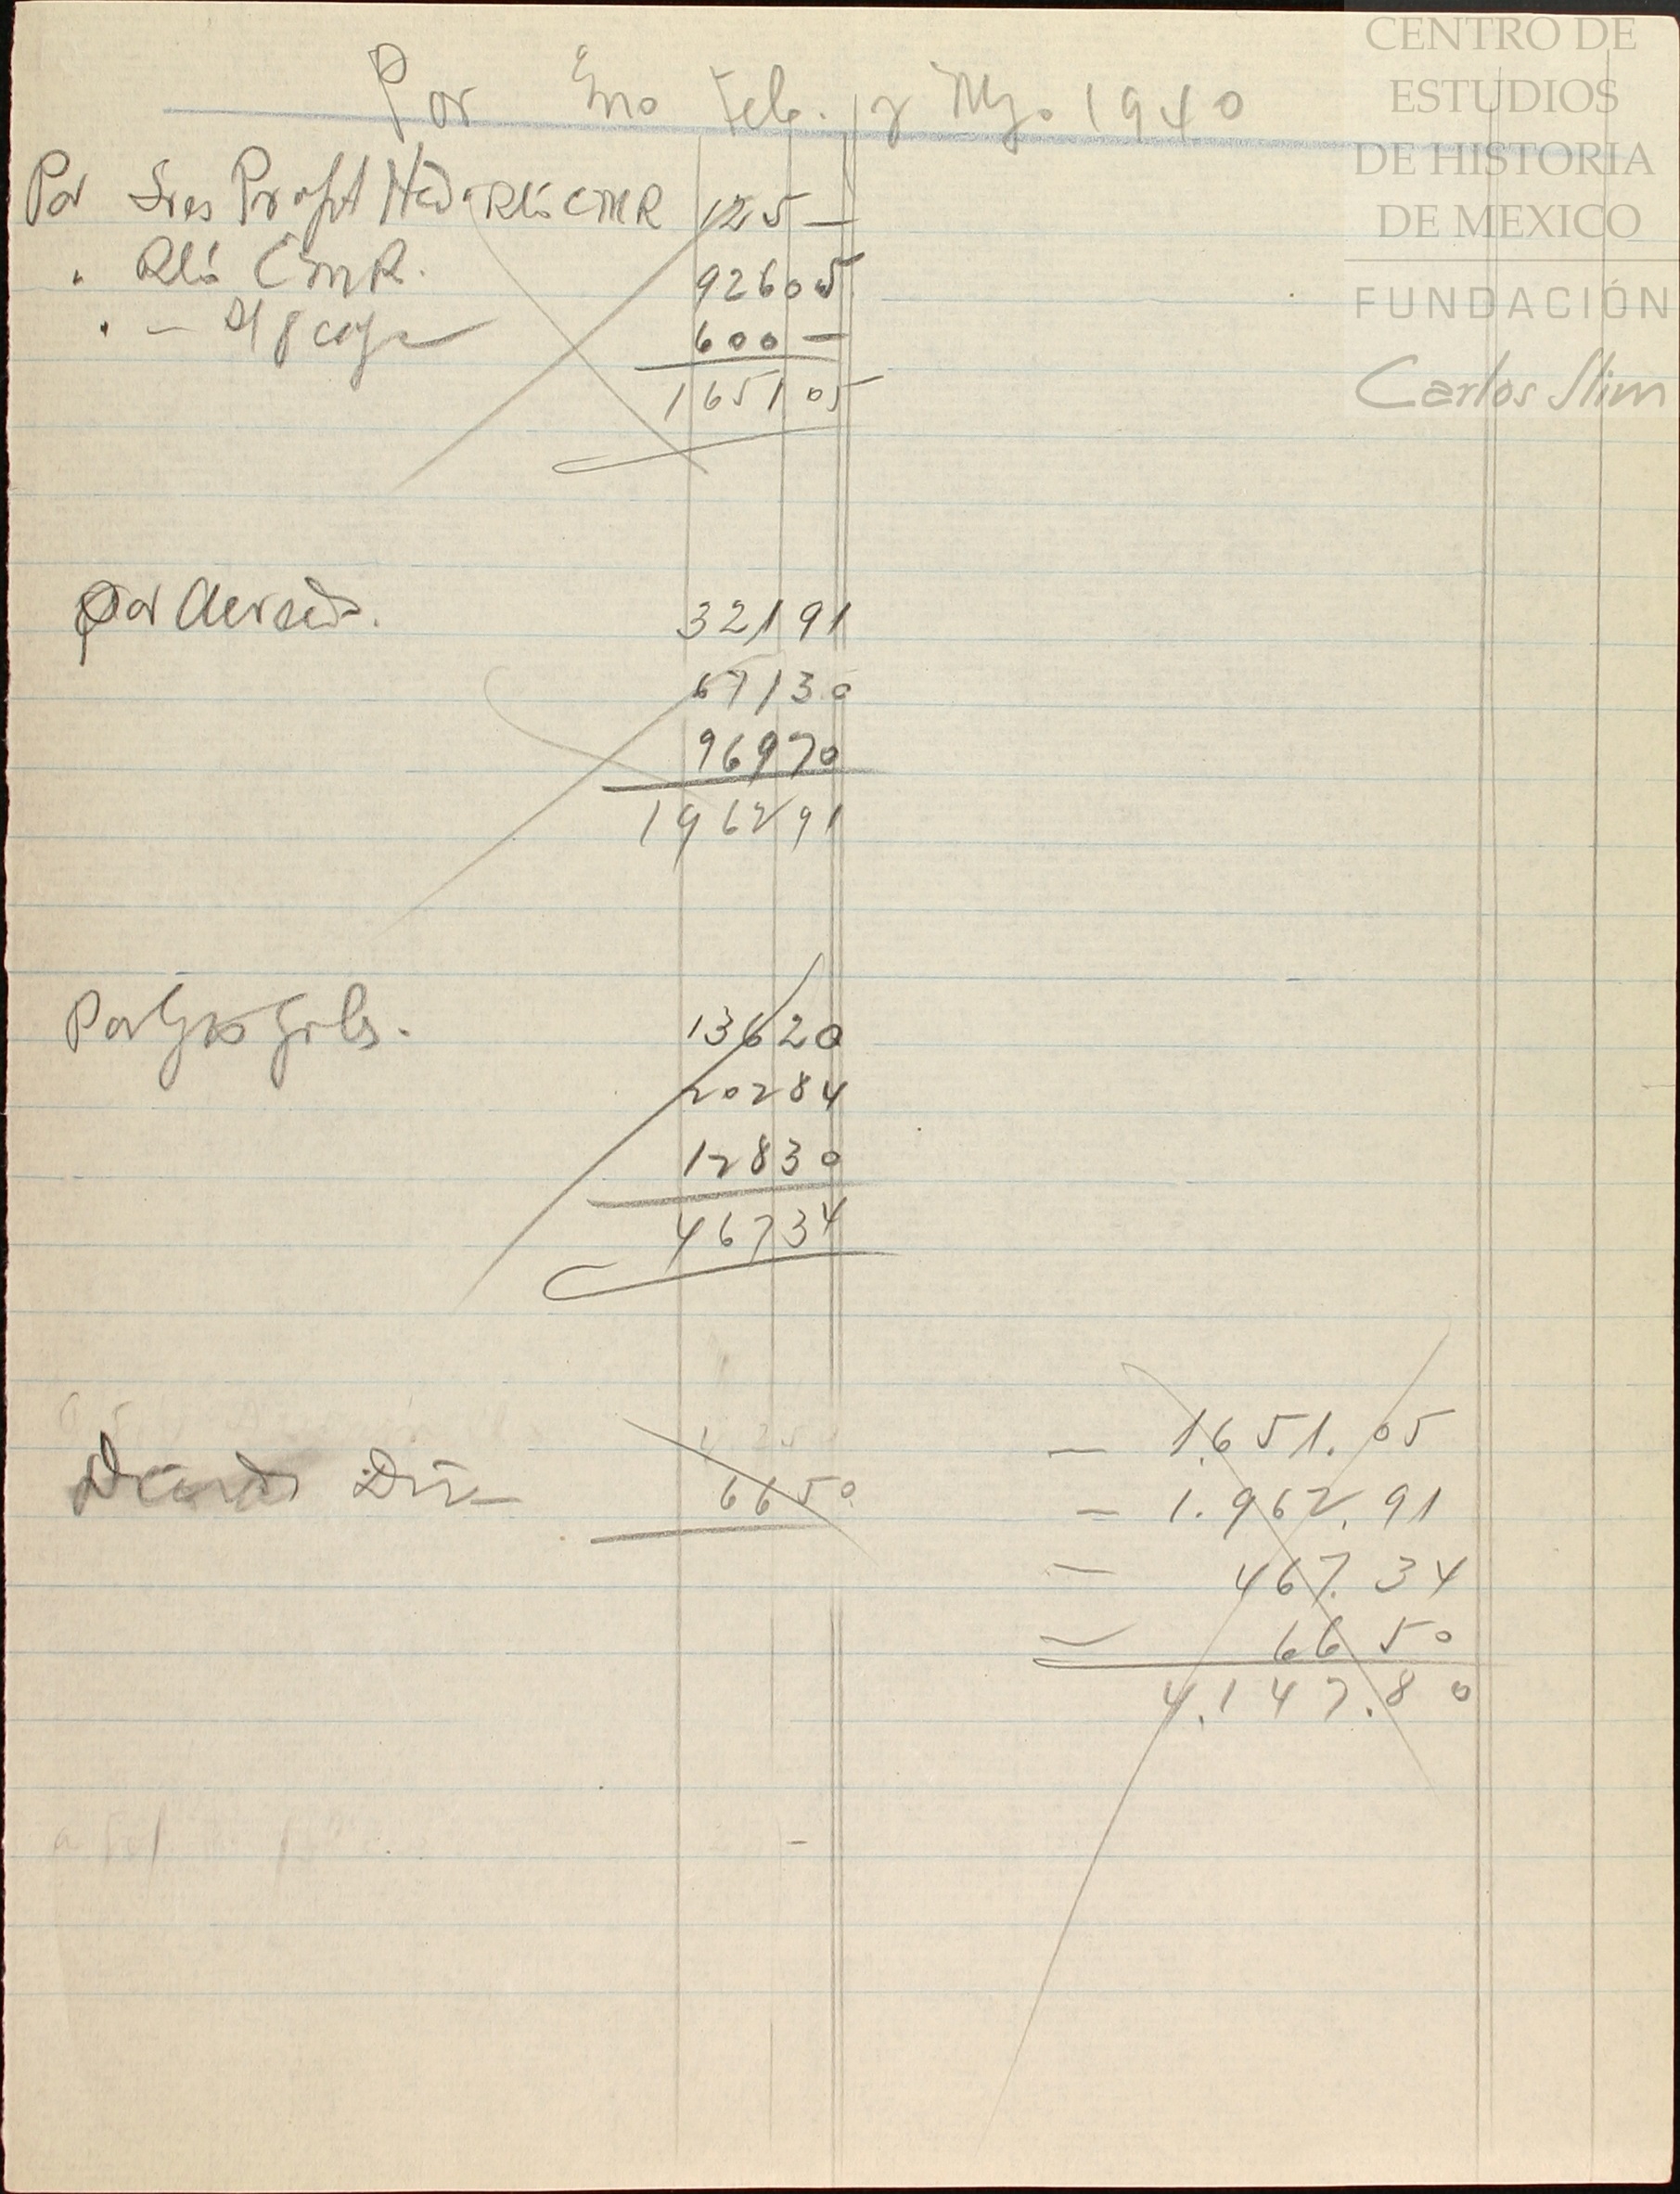 Por Eno Feb. y Mzo. 1940
Por Sres Profst Hed. Rls CMR 125 —
" Rls CMR. 926 05
" — 600 —
1651 05
Por Acreed. 321 91
671 30
969 70
1962 91
Por Gtos Grles. 136 20
202 84
128 30
467 34
66 50
— 1.651.05
— 1.962.91
— 467.34
— 66 50
4.147.80
CENTRO DE
ESTUDIOS
DE HISTORIA
DE MEXICO
FUNDACIÓN
Carlos Slim